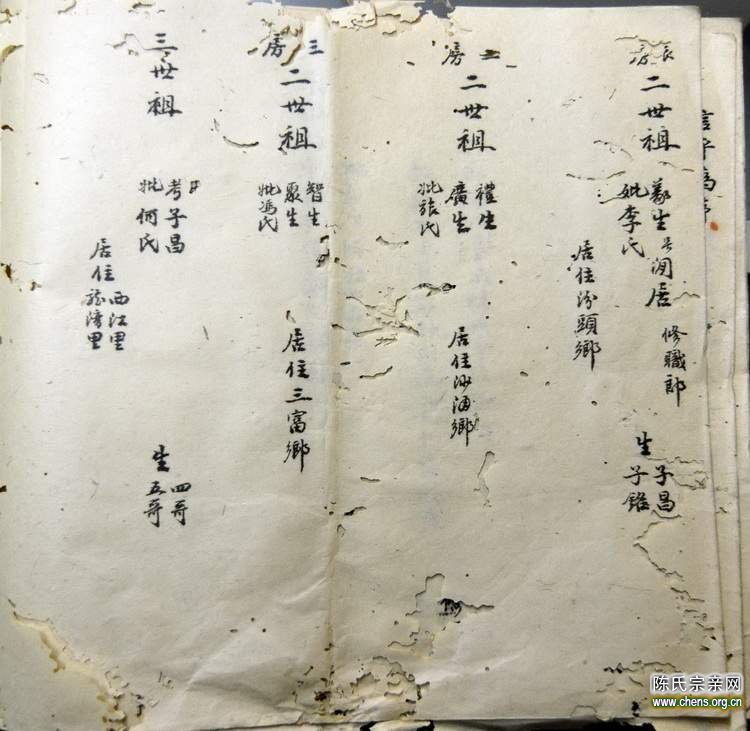 長房
二世祖
義生 号澗居 修職郎
妣李氏
居住汾頭鄉
生 子昌
子銘
二房
二世祖
禮生
廣生
妣張氏
居住沙涌鄉
三房
二世祖
智生
聚生
妣馮氏
居住三富鄉
三世祖
考子昌
妣何氏
居住 西江里
龍灣里
生 四哥
五哥
陈氏宗亲网
www.chens.org.cn